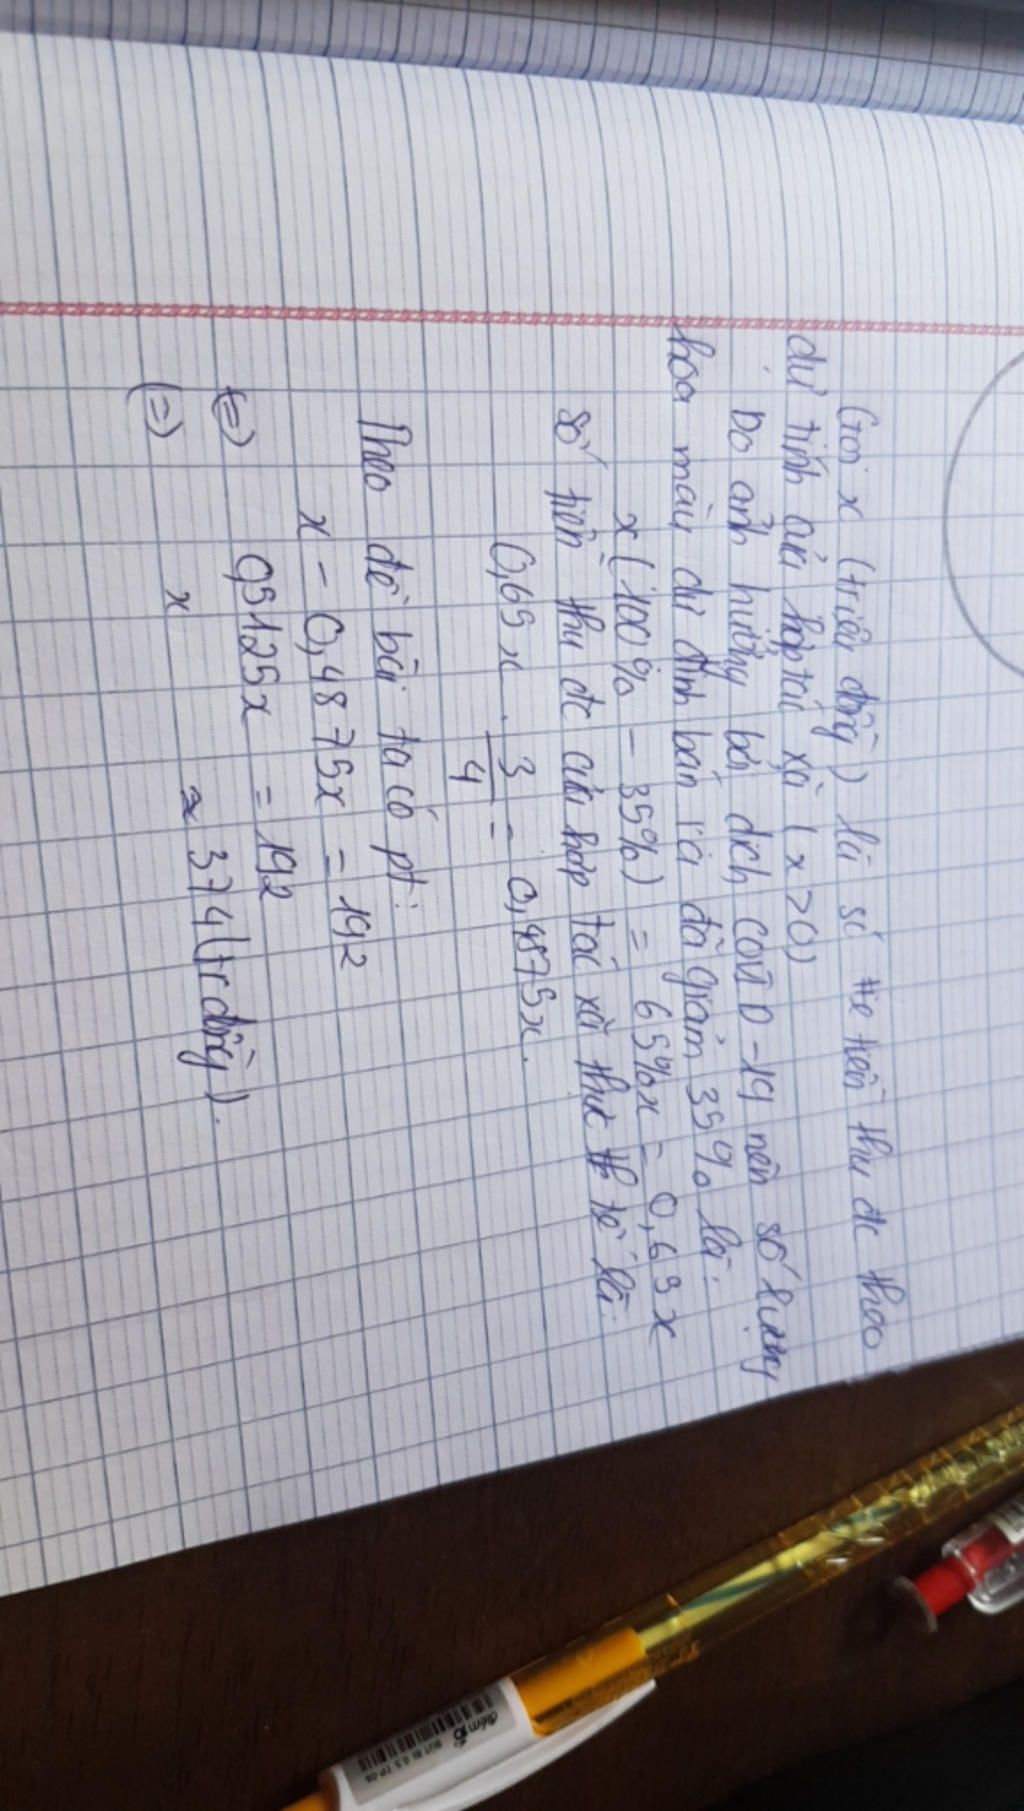 Gọi x (triệu đồng) là số tie tiền thu đc theo
dự tính của hợp tác xã (x > 0)
Do ảnh hưởng bởi dịch COVID-19 nên số lượng
hoa màu dự định bán ra đã giảm 35% là:
x (100% - 35%) = 65%x = 0,65x
số tiền thu đc của hợp tác xã thực th tế là:
0,65x . 3/4 = 0,4875x.
Theo đề bài ta có pt:
x - 0,4875x = 192
(=) 0,5125x = 192
(=) x ≈ 374 (tr đồng).
điểm 10
BÚT BI 0.5 TP-06